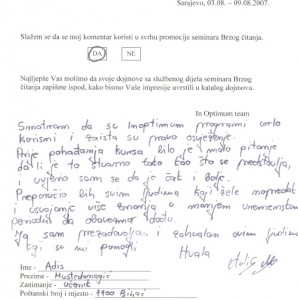 Sarajevo, 03.08. - 09.08.2007.
Slažem se da se moj komentar koristi u svrhu promocije seminara Brzog čitanja.
DA NE
Najljepše Vas molimo da svoje dojmove sa službenog dijela seminara Brzog
čitanja zapišete ispod, kako bismo Vaše impresije uvrstili u katalog dojmova.
In Optimum team
Smatram da su Inoptimum programi vrlo
korisni i zaista su pravo osvježenje.
Prije pohađanja kursa bilo je malo pitanje
da li je to stvarno tako kao što se predstavlja,
i uvjerio sam se da je čak i bolje.
Preporučio bih svim ljudima koji žele napredak
i usvajanje više znanja u manjem vremenskom
periodu da obavezno dođu.
Ja sam prezadovoljan i zahvalan svim ljudima
koji su mi pomogli.
Hvala
Ime - Adis
Prezime - Mustedanagić
Zanimanje - Učenik
Poštanski broj i mjesto - 77000 Bihać